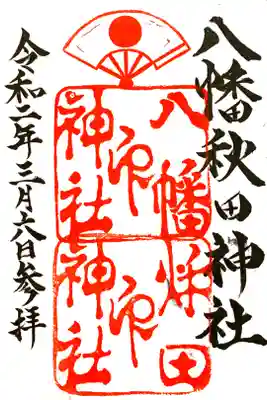 八幡秋田神社
八幡
神社
印
秋田
神社
印
令和二年三月六日参拝